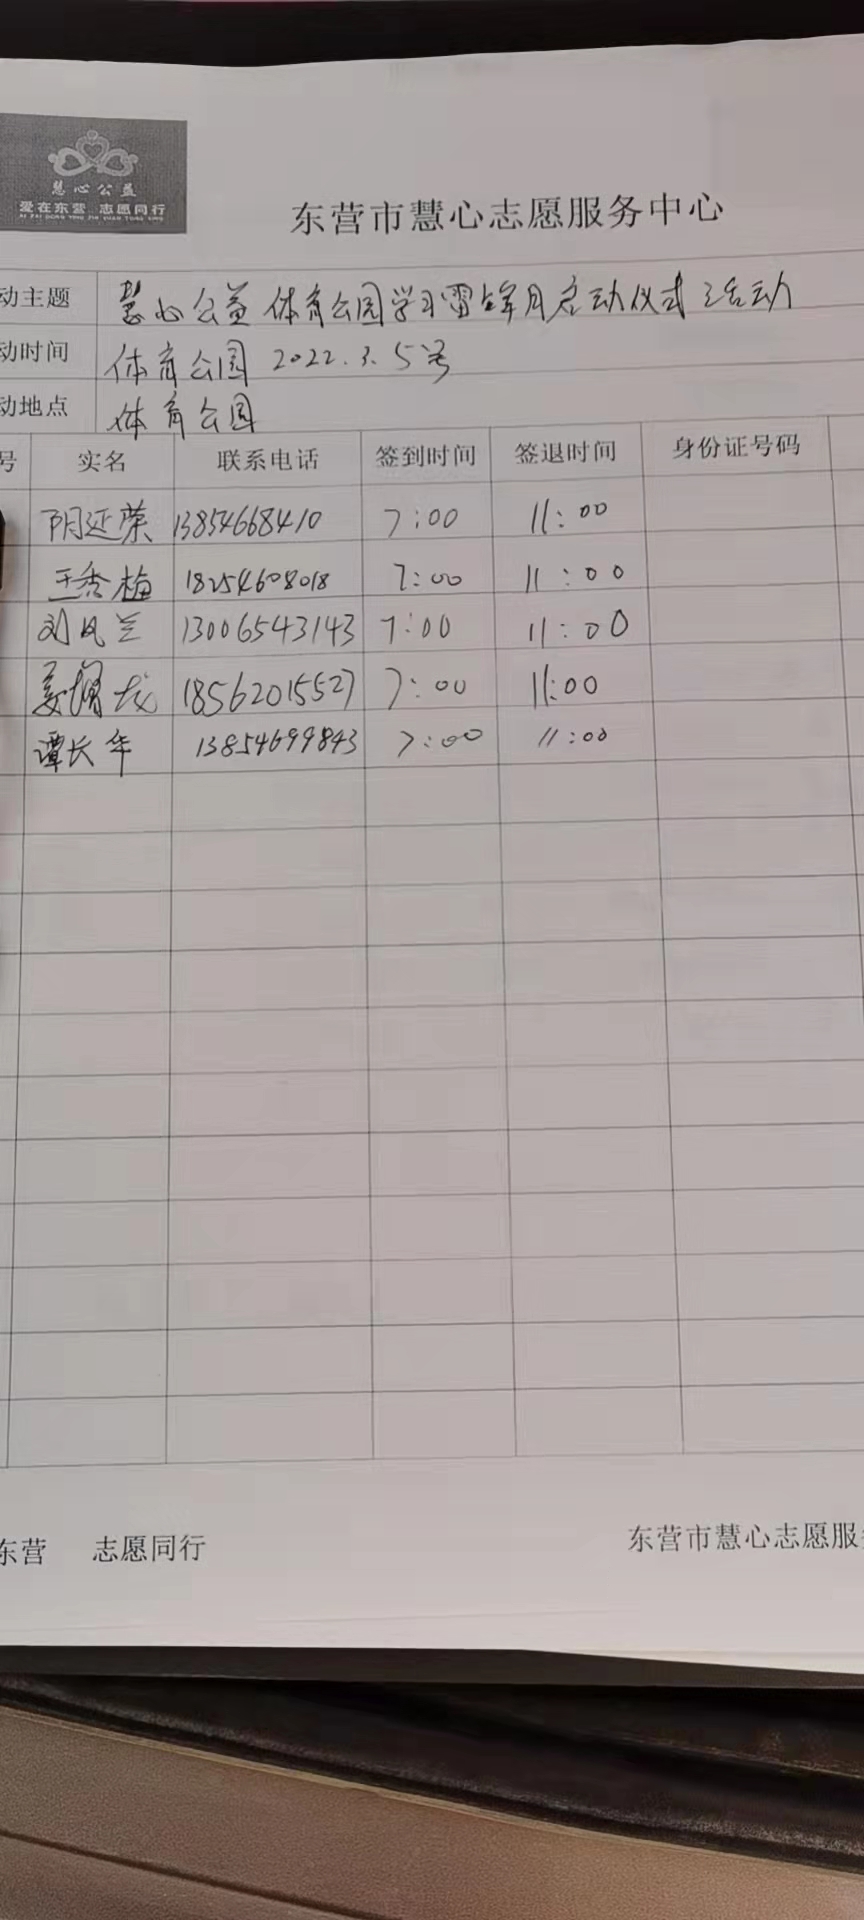 慧心公益
爱在东营 志愿同行
AI ZAI DONG YING ZHI YUAN TONG XING
东营市慧心志愿服务中心
动主题 慧心公益体育公园学习雷锋月启动仪式活动
动时间 体育公园 2022.3.5号
动地点 体育公园
号 实名 联系电话 签到时间 签退时间 身份证号码
阴延荣 13854668410 7:00 11:00
王秀梅 18254608018 7:00 11:00
刘凤兰 13006543143 7:00 11:00
姜 龙 18562015527 7:00 11:00
谭长华 13854699843 7:00 11:00
东营 志愿同行 东营市慧心志愿服